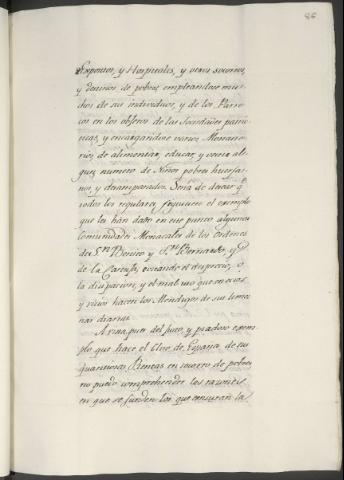 86
Expositos, y Hospitales, y otros socorros,
y destinos de pobres, empleandose mu-
chos de sus individuos, y de los Parro-
cos en los objetos de las Sociedades patrio-
ticas, y encargandose varios Monaste-
rios, de alimentar, educar, y vestir al-
gun numero de Niños pobres huerfa-
nos, y desamparados. Seria de desear q.e
todos los regulares siguiesen el exemplo
que les han dado en este punto algunas
Comunidades Monacales de los Ordenes
de S.n Benito y S.n Bernardo, y
de la Cartuja, evitando el desprecio, ó
la disipacion, y el mal uso que en ocios,
y vicios hacen los Mendigos de sus limos-
nas diarias.
A vista, pues del justo, y piadoso exem-
plo que hace el Clero de España de sus
quantiosas Rentas en socorro de pobres
no puedo comprehender las razones
en que se funden los que censuran la